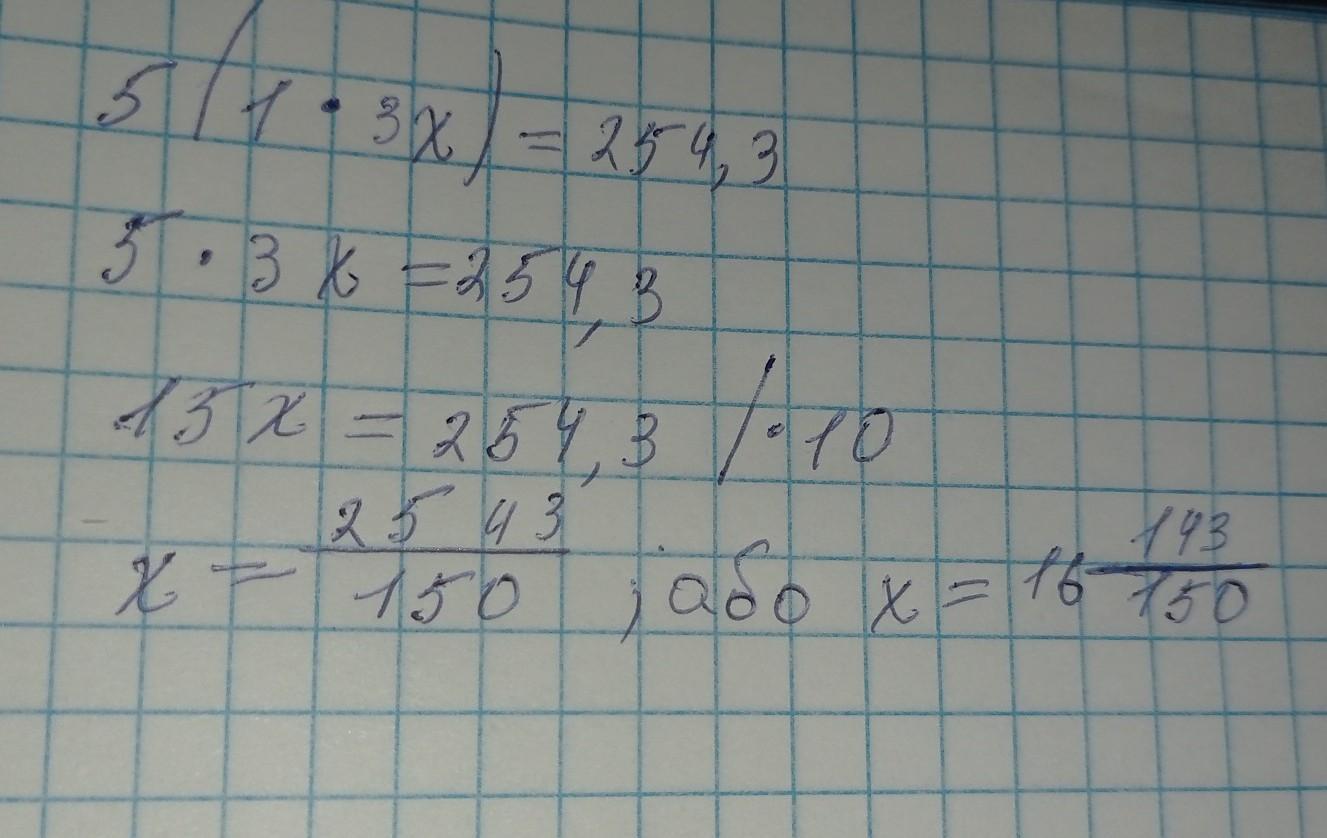 5(1·3x)=254,3
5·3x=254,3
15x=254,3 /·10
x=2543/150 ; або x=16 143/150